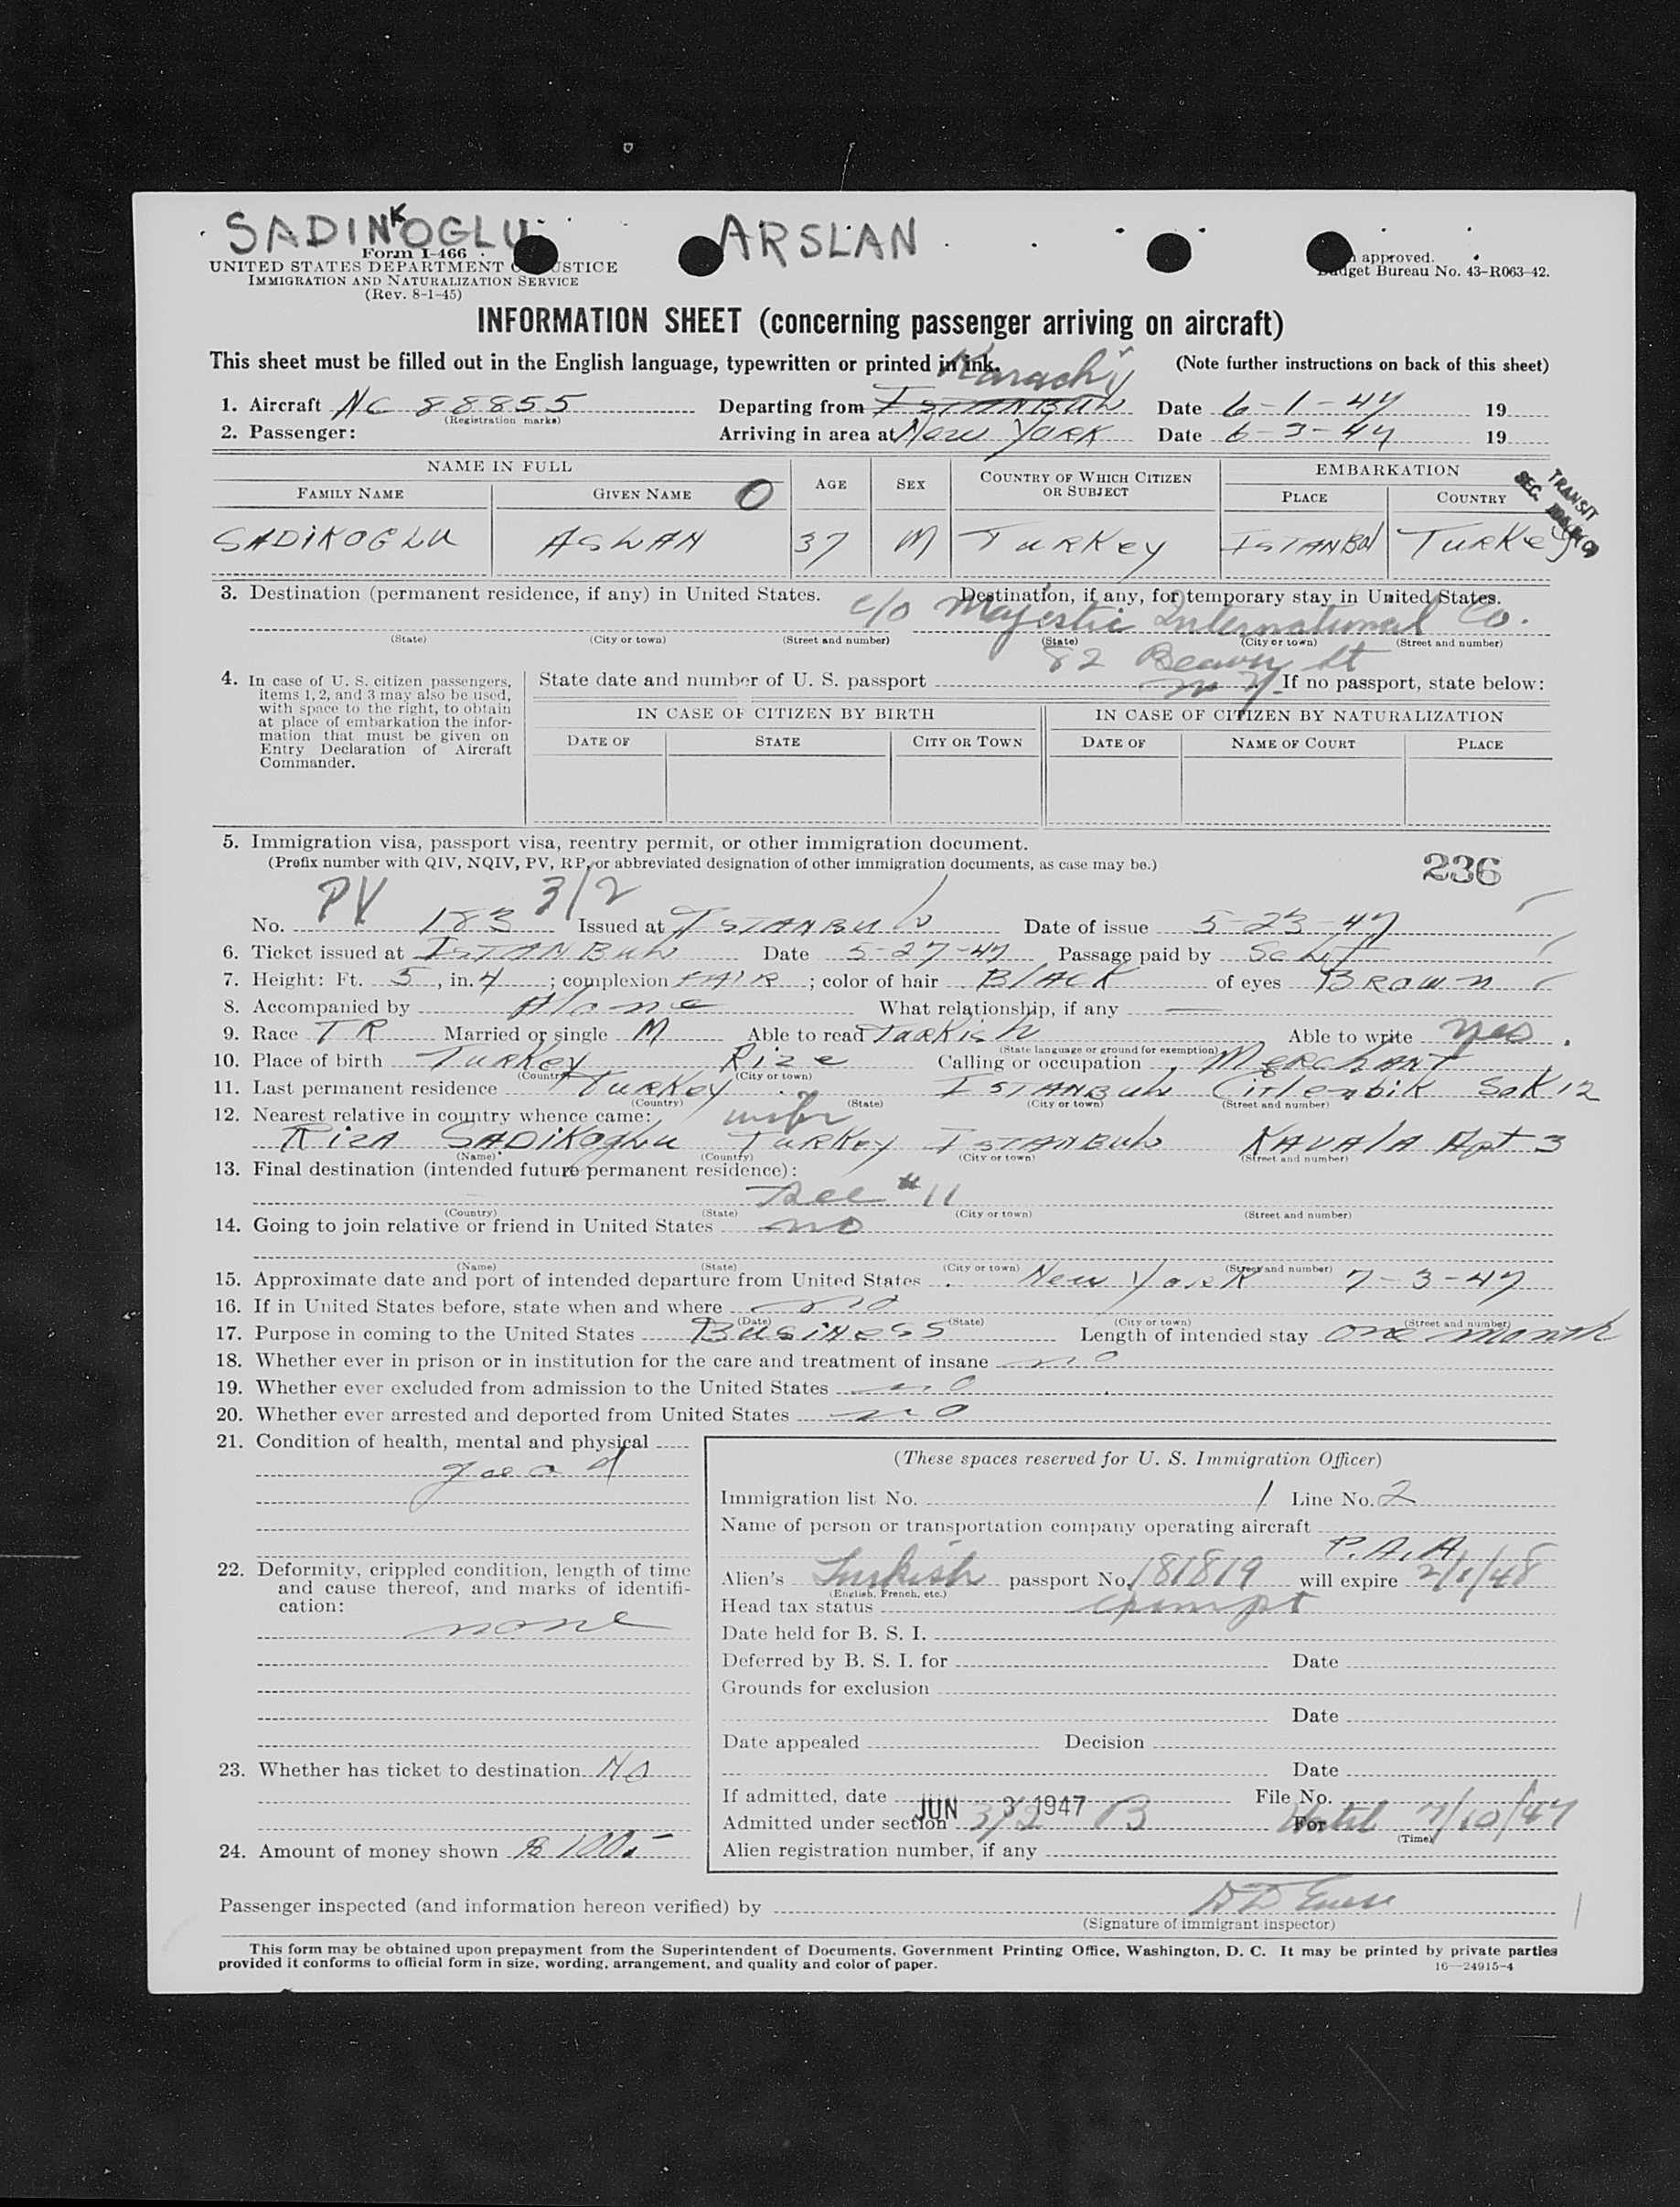 SADINKOGLU ARSLAN
Form I-466
UNITED STATES DEPARTMENT OF JUSTICE
IMMIGRATION AND NATURALIZATION SERVICE
(Rev. 8-1-45)
approved.
Budget Bureau No. 43-R063-42.
INFORMATION SHEET (concerning passenger arriving on aircraft)
This sheet must be filled out in the English language, typewritten or printed in ink. (Note further instructions on back of this sheet)
Karachi
1. Aircraft NC 88855 Departing from ISTANBUL Date 6-1-47 19
(Registration marks)
2. Passenger: Arriving in area at New York Date 6-3-47 19
NAME IN FULL AGE SEX COUNTRY OF WHICH CITIZEN OR SUBJECT EMBARKATION
FAMILY NAME GIVEN NAME O PLACE COUNTRY
TRANSIT
SEC.
SADIKOGLU ASLAN 37 M TURKEY ISTANBUL TURKEY
3. Destination (permanent residence, if any) in United States. Destination, if any, for temporary stay in United States.
c/o Majestic International Co.
(State) (City or town) (Street and number) (State) (City or town) (Street and number)
82 Beaver St
N Y.
4. In case of U. S. citizen passengers, items 1, 2, and 3 may also be used, with space to the right, to obtain at place of embarkation the information that must be given on Entry Declaration of Aircraft Commander.
State date and number of U. S. passport If no passport, state below:
IN CASE OF CITIZEN BY BIRTH IN CASE OF CITIZEN BY NATURALIZATION
DATE OF STATE CITY OR TOWN DATE OF NAME OF COURT PLACE
5. Immigration visa, passport visa, reentry permit, or other immigration document.
(Prefix number with QIV, NQIV, PV, RP, or abbreviated designation of other immigration documents, as case may be.)
236
No. PV 183 3/2 Issued at ISTANBUL Date of issue 5-23-47
6. Ticket issued at ISTANBUL Date 5-27-47 Passage paid by Self
7. Height: Ft. 5, in. 4; complexion FAIR; color of hair BLACK of eyes BROWN
8. Accompanied by Alone What relationship, if any —
9. Race TR Married or single M Able to read Turkish Able to write yes.
(State language or ground for exemption)
10. Place of birth Turkey Rize Calling or occupation MERCHANT
(Country) (City or town)
11. Last permanent residence Turkey ISTANBUL Citlenbik Sok 12
(Country) (State) (City or town) (Street and number)
12. Nearest relative in country whence came: wife
RIZA SADIKOGLU TURKEY ISTANBUL KAVALA Apt 3
(Name) (Country) (City or town) (Street and number)
13. Final destination (intended future permanent residence):
See #11
(Country) (State) (City or town) (Street and number)
14. Going to join relative or friend in United States no
(Name) (State) (City or town) (Street and number)
15. Approximate date and port of intended departure from United States New York 7-3-47
16. If in United States before, state when and where no
(Date) (State) (City or town) (Street and number)
17. Purpose in coming to the United States BUSINESS Length of intended stay one month
18. Whether ever in prison or in institution for the care and treatment of insane no
19. Whether ever excluded from admission to the United States no
20. Whether ever arrested and deported from United States no
21. Condition of health, mental and physical
good
22. Deformity, crippled condition, length of time and cause thereof, and marks of identification:
none
23. Whether has ticket to destination No
24. Amount of money shown $ 100.-
(These spaces reserved for U. S. Immigration Officer)
Immigration list No. 1 Line No. 2
Name of person or transportation company operating aircraft
P.A.A
Alien's Turkish passport No. 181819 will expire 2/1/48
(English, French, etc.)
Head tax status exempt
Date held for B. S. I.
Deferred by B. S. I. for Date
Grounds for exclusion
Date
Date appealed Decision
Date
If admitted, date JUN 3 1947 File No.
Admitted under section 3/2 B For Until 7/10/47
(Time)
Alien registration number, if any
Passenger inspected (and information hereon verified) by
(Signature of immigrant inspector)
This form may be obtained upon prepayment from the Superintendent of Documents, Government Printing Office, Washington, D. C. It may be printed by private parties
provided it conforms to official form in size, wording, arrangement, and quality and color of paper. 16—24915-4